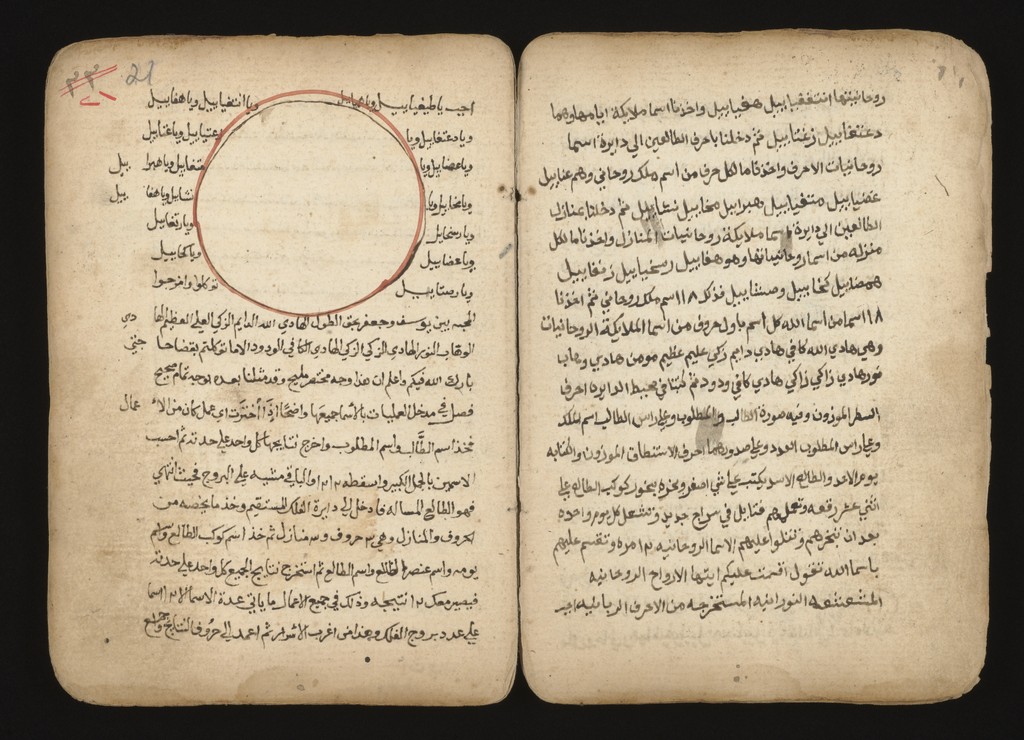 روحانيتها انتغغياييل هغياييل واخذنا اسما ملايكة ايامها وهما
دعتغاييل زغتاييل ثم دخلنا باحرف الطالعين الي دايرة اسما
روحانيات الاحرف واخذنا ما لكل حرف من اسم ملك روحاني وهم عناييل
عضياييل متغياييل وهبراييل مخاييل نشاييل ثم دخلنا بمنازل
الطالعين الي دايرة اسما ملايكة روحانيات المنازل واخذنا ما لكل
منزله من اسما روحانياتها وهو هفاييل رسخياييل زتغاييل
همضاييل كخاييل وصتاييل فذلك ١٨ اسم ملك روحاني ثم اخذنا
١٨ اسما من اسما الله كل اسم باول حروف من اسما الملايكة الروحانيات
وهي هادي الله كافي هادي دايم زكي عليم عظيم مومن هادي وهاب
نور هادي زاكي زاكي هادي كافي ودود ثم كتبنا في محيط الدايره احرف
السطر الموزون وفيه صورة الطالب والمطلوب وعلي راس الطالب اسم الملك
وعلي راس المطلوب العدد وعلي صدورهما احرف الاستنطاق الموزون والكتابه
يوم الاحد والطالع الاسد يكتب علي شي اصفر وبخره ببخور كوكب الطالع علي
اثني عشر رقعه وتعمل هم فتايل في سراج جديد وتشعل كل يوم واحده
بعد ان تبخرهم وتتلوا عليهم الاسما الروحانيه ٢١ مره وتقسم عليهم
باسما الله تقول اقسمت عليكم ايتها الارواح الروحانيه
المشعشعه النورانيه المستخرجه من الاحرف الربانيه اجب
٢١
21
اجب يا طيفياييل ويا ويا انتغياييل ويا هفاييل
ويا دعتغاييل ويا عتياييل ويا عناييل
ويا عضاييل ويا متغاييل ويا هبرا ييل
ويا مخاييل ويا نشاييل ويا هفا ييل
ويا رسخاييل ويا زتغاييل
ويا عضاييل ويا كخاييل
ويا رصتاييل توكلوا وافرحوا
المحبه بين يوسف وجعفر بحق الطول الهادي الله الدايم الزكي العلي العظيم الها دي
الوهاب النور الهادي الزكي الزكي الهادي الكافي الودود الا ما توكلتم بقضا حا جتي
بارك الله فيكم واعلم ان هذا وجه مختصر مليح وقد مثلنا بعده اوجه تمام صحيح
فصل في مدخل العمليات بالاسما جميعها واضحا اذا اخترت اي عمل كان من الا عمال
فخذ اسم الطالب واسم المطلوب واخرج نتايجها كل واحد علي حدته ثم احسب
الاسمين بالجمل الكبير واسقطه ١٢ ١٢ والباقي مشيه علي البروج فحيث انتهي
فهو الطالع المساله فادخل الي دايرة الفلك المستقيم وخذ ما يخصه من
الحروف والمنازل وهي ٣ حروف و٣ منازل ثم خذ اسم كوكب الطالع واسم
يومه واسم عنصر الطالع واسم الطالع ثم استخرج نتايج الجميع كل واحد علي حدته
فيصير معك ١٢ نتيجه وذلك في جميع الاعمال ما ياتي عدة الاسما الا ١٢ اسما
علي عدد بروج الفلك وهذا من اغرب الاسرار ثم اعمد الي حروف النتايج واجمع